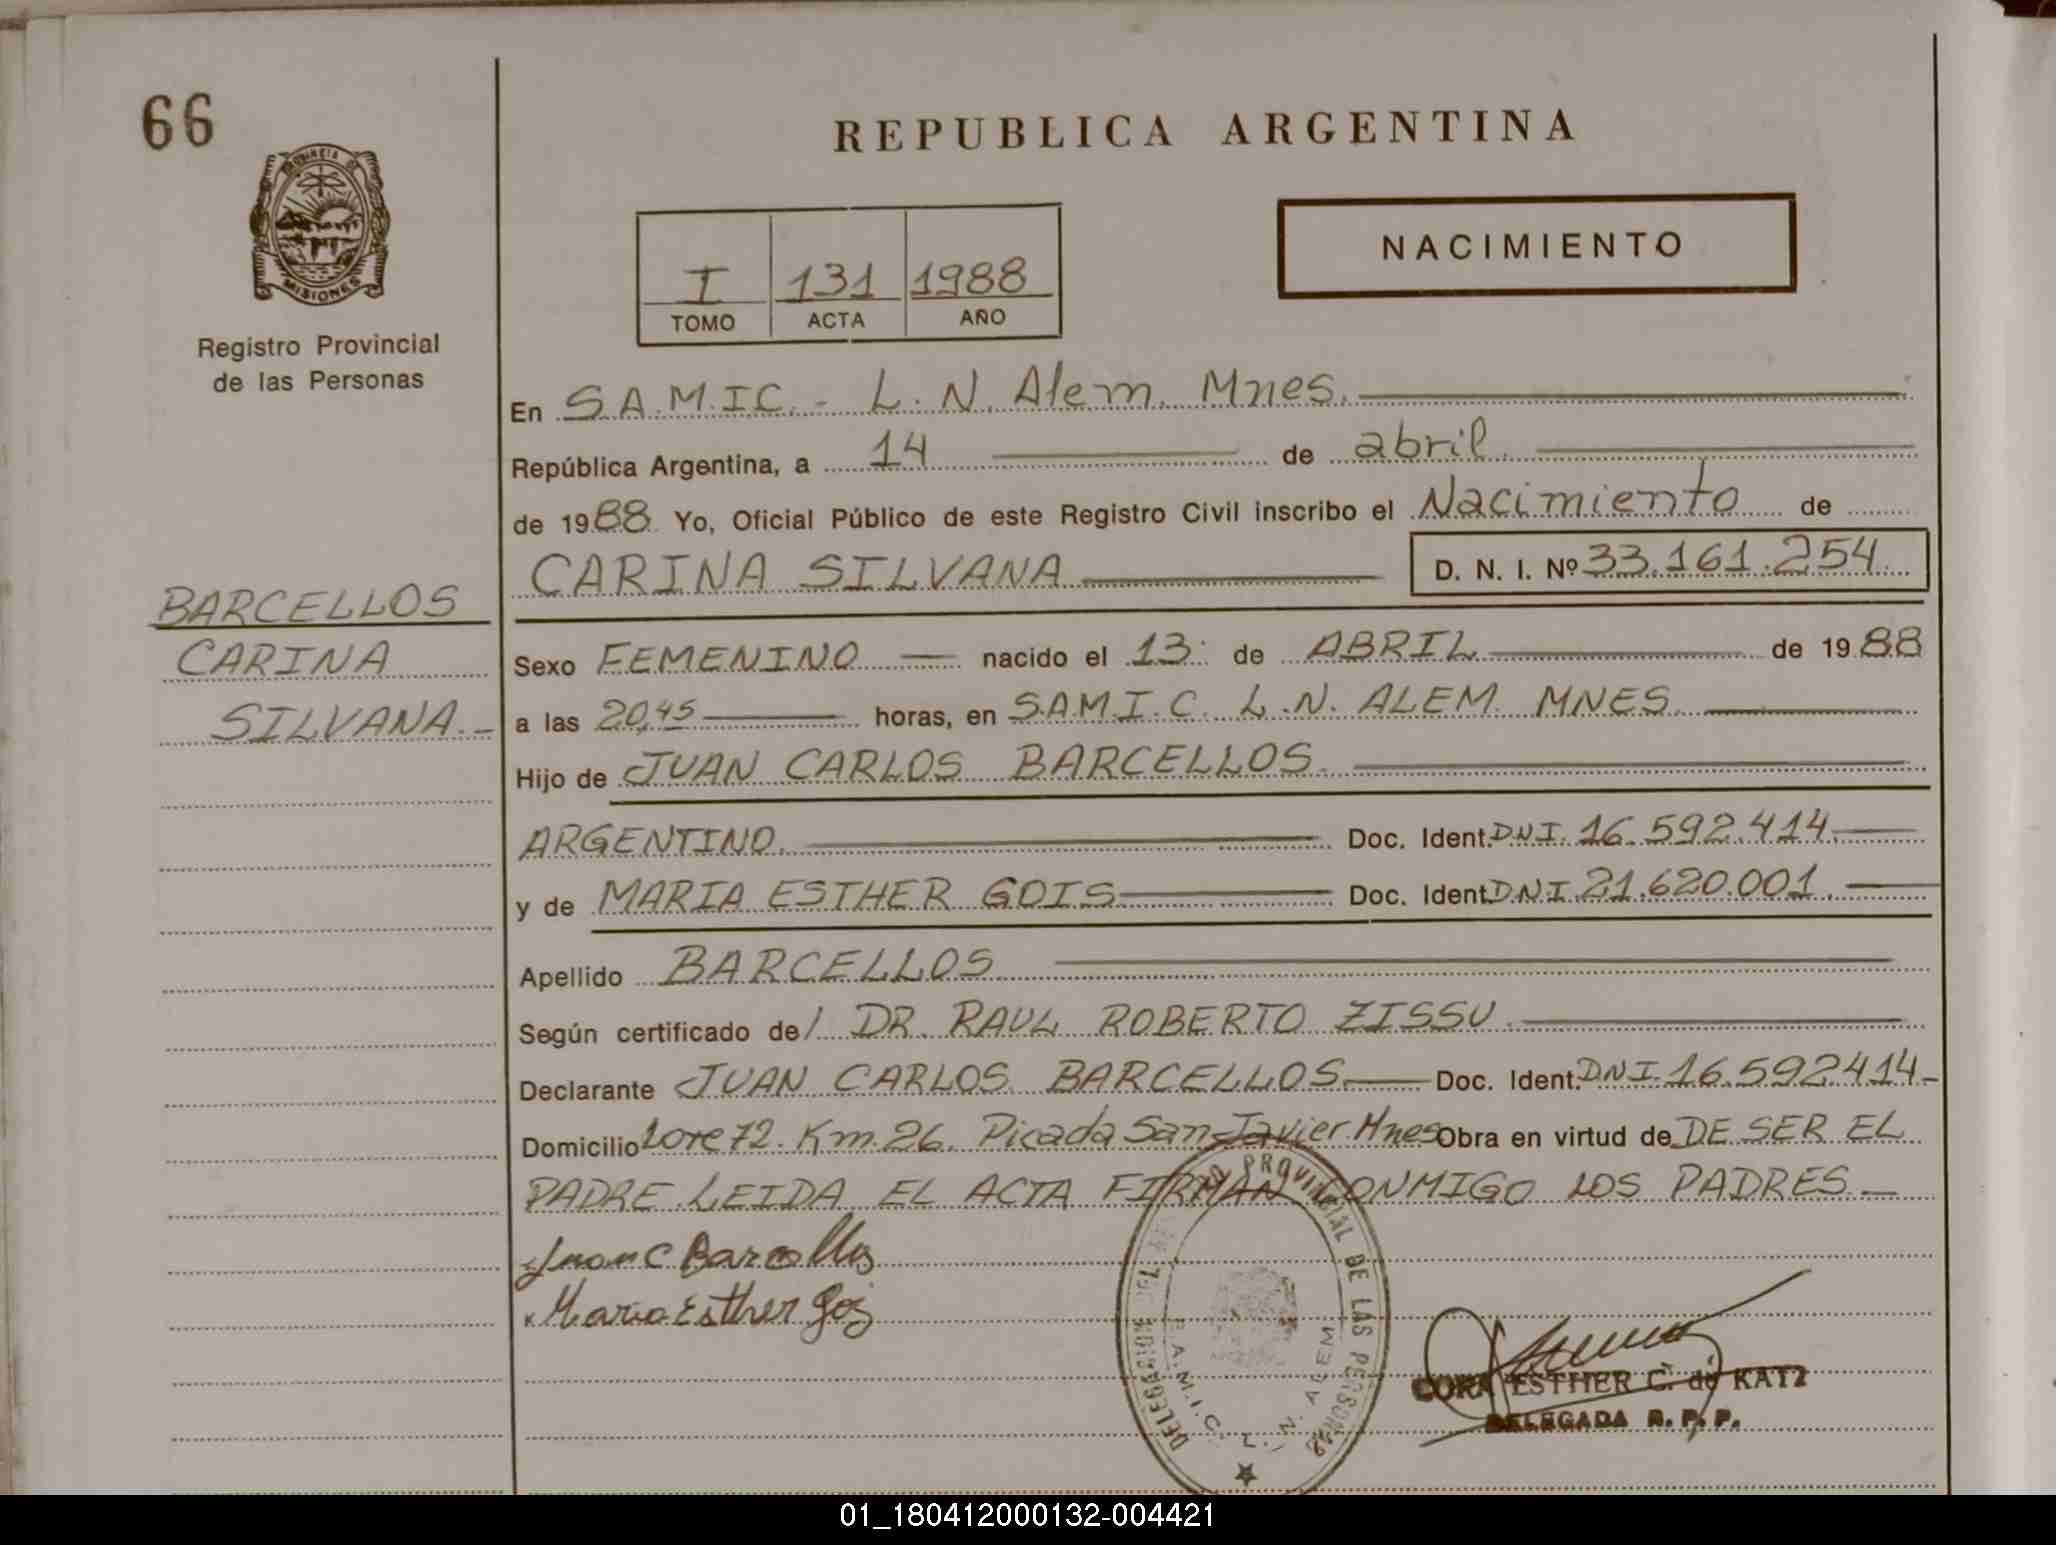 66
PROVINCIA DE
MISIONES
Registro Provincial
de las Personas
BARCELLOS
CARINA
SILVANA.-
REPUBLICA ARGENTINA
NACIMIENTO
I 131 1988
TOMO ACTA AÑO
En S.A.M.I.C. - L. N. Alem. Mnes.
República Argentina, a 14 de abril.
de 1988 Yo, Oficial Público de este Registro Civil inscribo el Nacimiento de
CARINA SILVANA D. N. I. Nº 33.161.254
Sexo FEMENINO nacido el 13 de ABRIL de 1988
a las 20,45 horas, en S.A.M.I.C. L.N. ALEM MNES.
Hijo de JUAN CARLOS BARCELLOS.
ARGENTINO. Doc. Ident. D.N.I. 16.592.414.
y de MARIA ESTHER GOIS Doc. Ident. D.N.I. 21.620.001.
Apellido BARCELLOS
Según certificado de/ DR. RAUL ROBERTO ZISSU
Declarante JUAN CARLOS BARCELLOS Doc. Ident. D.N.I. 16.592.414-
Domicilio Lote 72. Km. 26. Picada San Javier Mnes Obra en virtud de DE SER EL
PADRE. LEIDA EL ACTA FIRMAN CONMIGO LOS PADRES.-
Juan C Barcellos
Maria Esther Gois
PROVINCIAL DE LAS PERSONAS
S.A.M.I.C. L. N. ALEM
CORA ESTHER C. de KATZ
DELEGADA R. P. P.
01_180412000132-004421